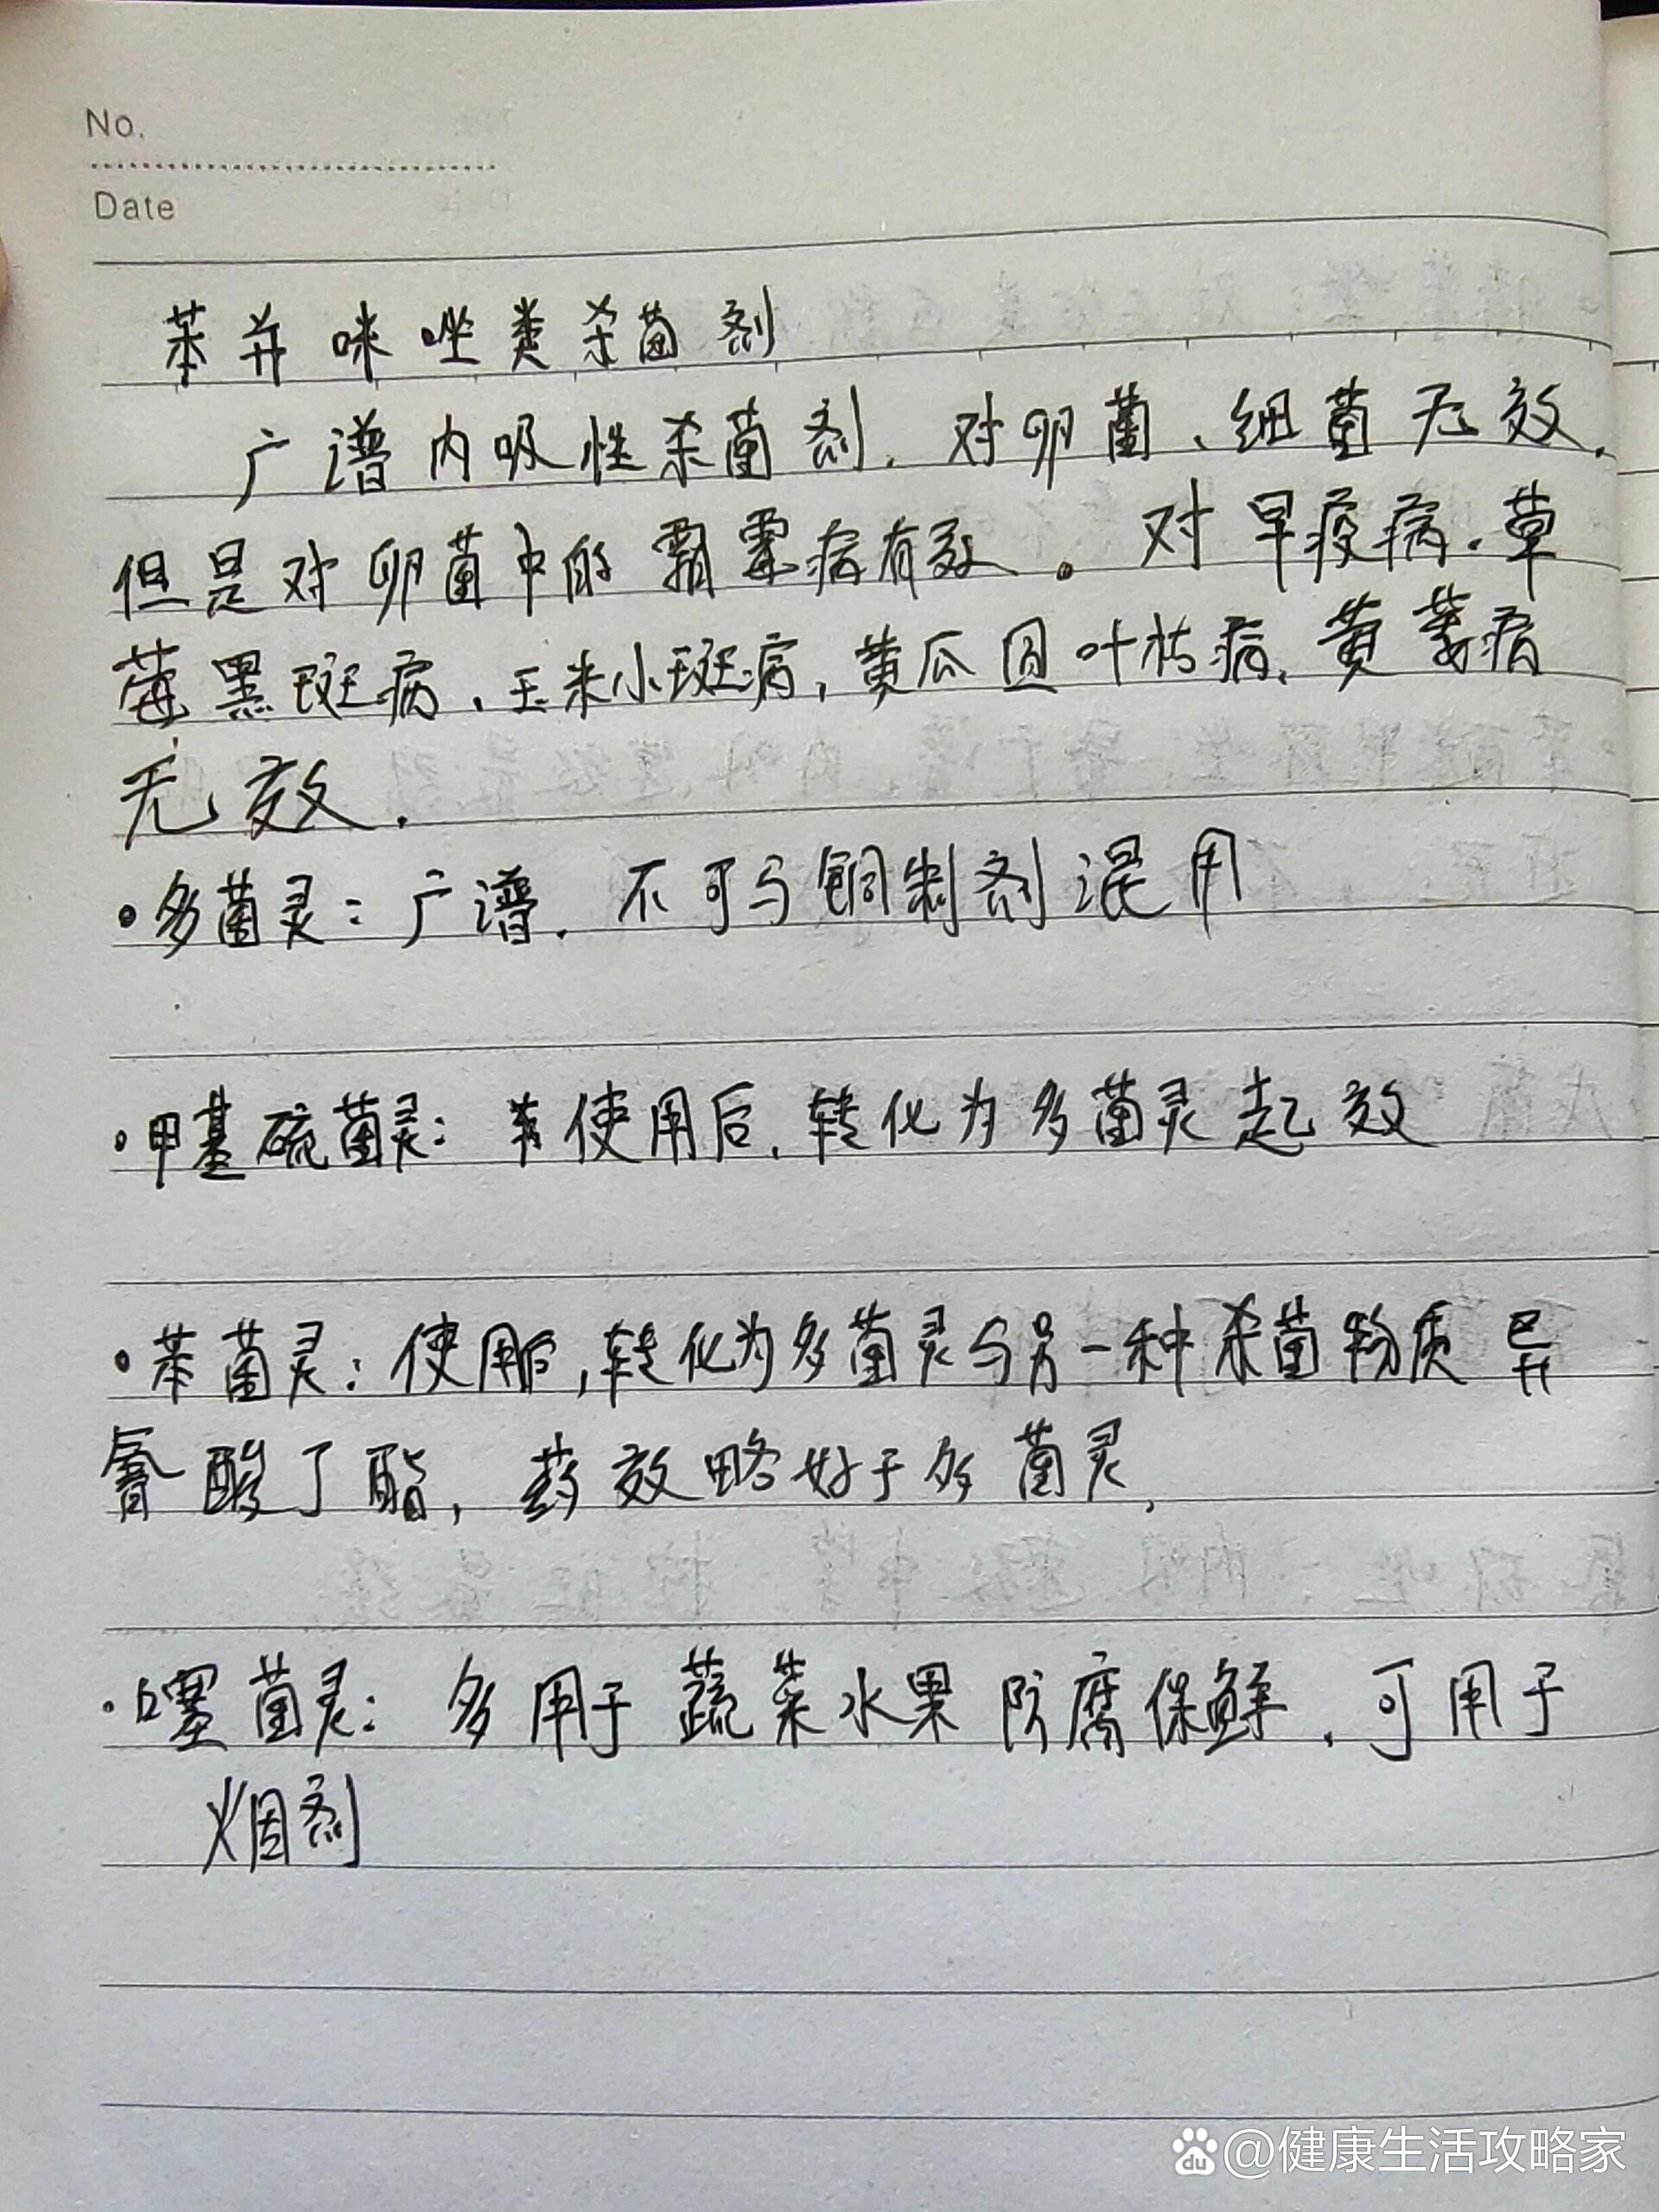 No.
Date
苯并咪唑类杀菌剂
广谱内吸性杀菌剂，对卵菌、细菌无效.
但是对卵菌中的霜霉病有效。对早疫病.草
莓黑斑病、玉米小斑病，黄瓜圆叶枯病、黄萎病
无效.
•多菌灵：广谱．不可与铜制剂混用
•甲基硫菌灵：使用后，转化为多菌灵起效
•苯菌灵：使用后，转化为多菌灵与另一种杀菌物质异
氰酸丁酯，药效略好于多菌灵，
•噻菌灵：多用于蔬菜水果防腐保鲜．可用于
烟剂
du @健康生活攻略家